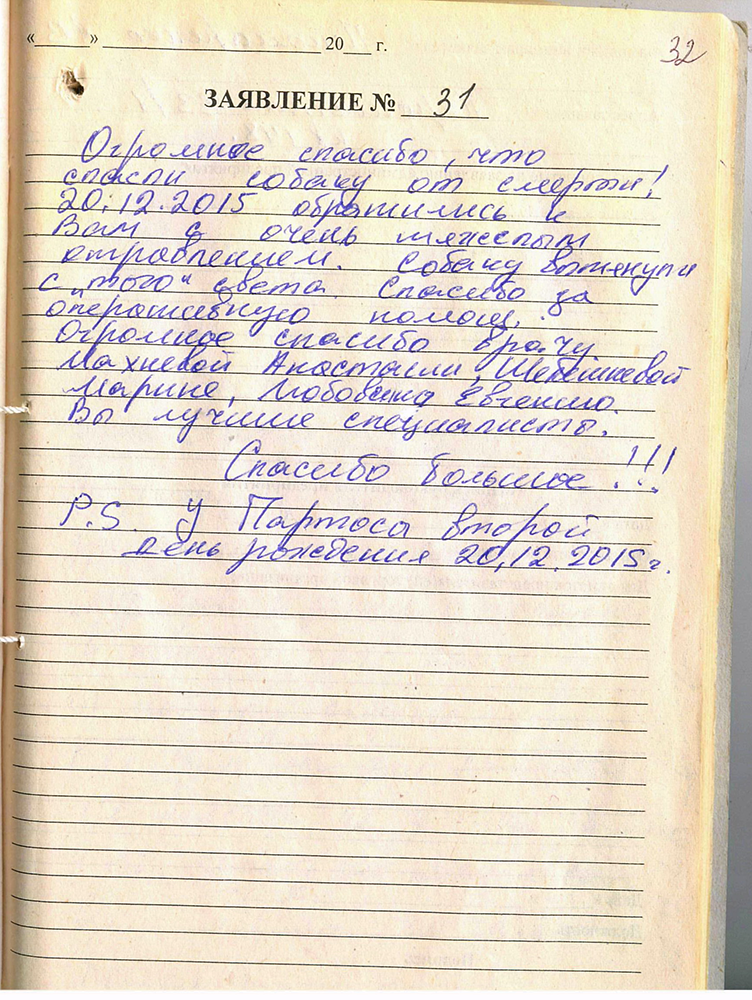 «____» ____________________ 20___ г.
32
ЗАЯВЛЕНИЕ № 31
Огромное спасибо, что
спасли собаку от смерти!
20.12.2015 обратились к
Вам с очень тяжелым
отравлением. Собаку вытянули
с "того" света. Спасибо за
оперативную помощь.
Огромное спасибо врачу
Махневой Анастасии,
Марине, Евгению.
Вы лучшие специалисты.
Спасибо большое!!!
P.S. У Партоса второй
день рождения 20.12.2015г.